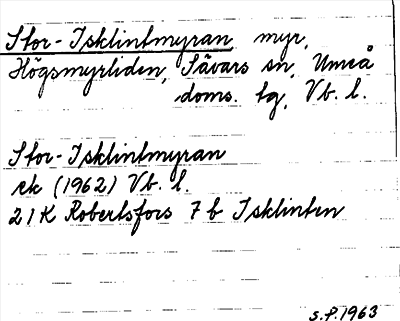 Stor-Isklintmyran, myr,
Högsmyrliden, Sävars sn, Umeå
doms. tg, Vb. l.
Stor-Isklintmyran
ek (1962) Vb. l.
21K Robertsfors 7b Isklinten
S.P.1963